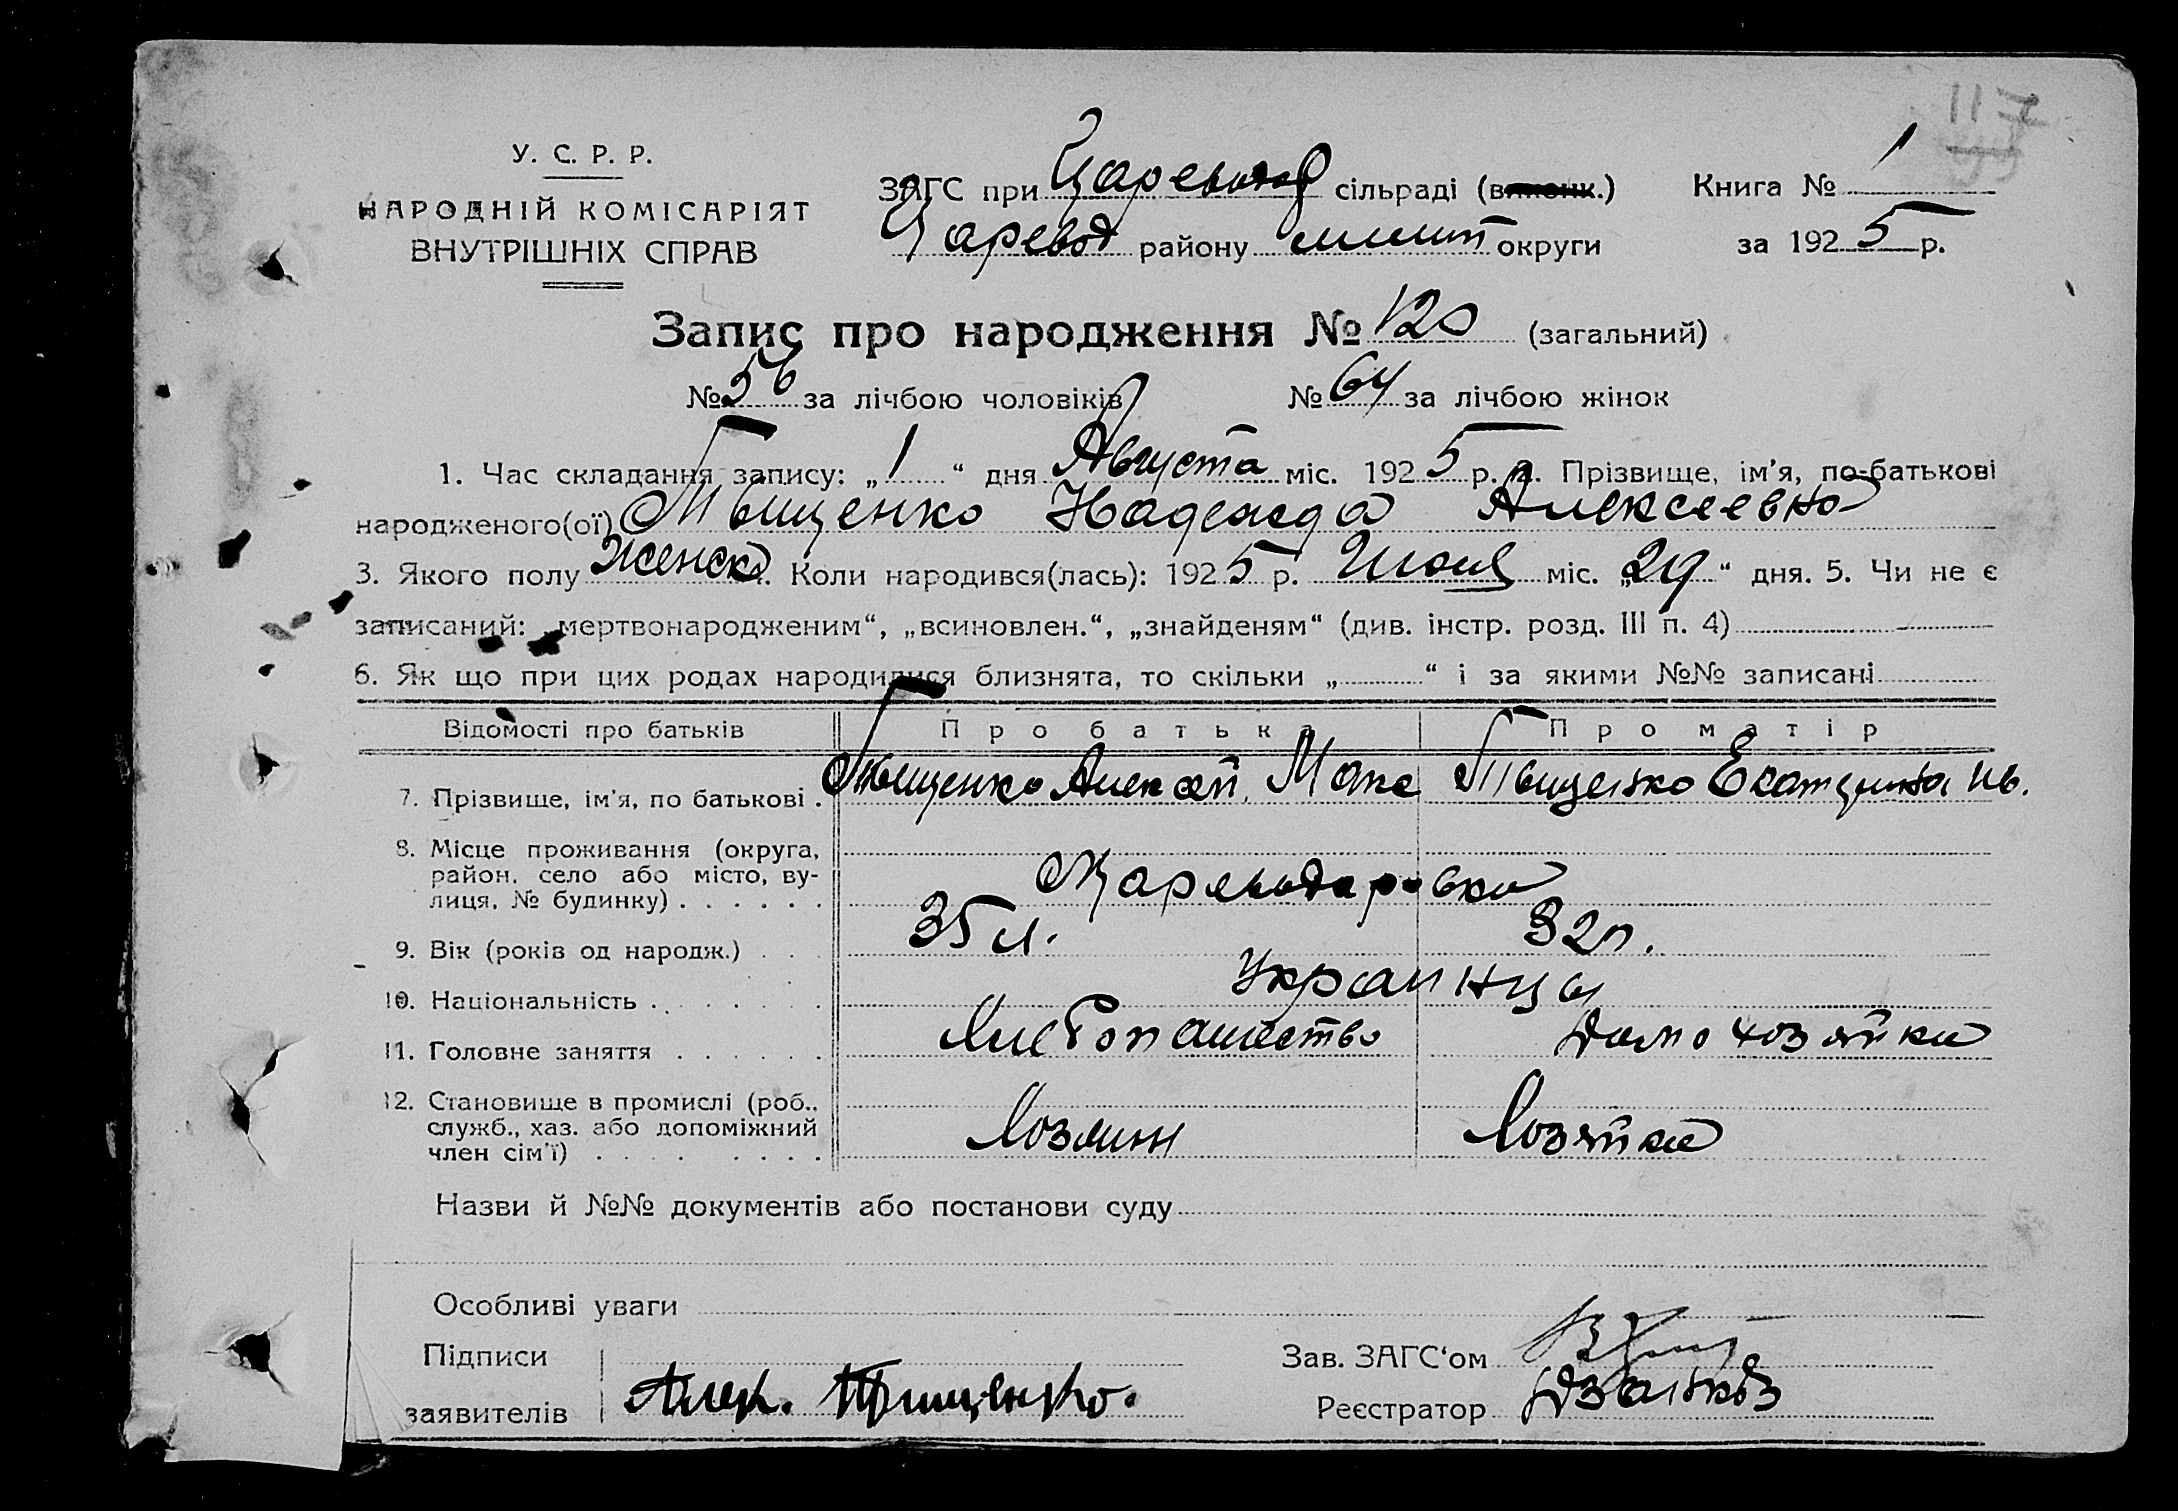 117
У. С. Р. Р.
НАРОДНІЙ КОМІСАРІЯТ
ВНУТРІШНІХ СПРАВ
ЗАГС при сільраді (виконк.) Книга № 1
Царевод району округи за 1925 р.
Запис про народження № 120 (загальний)
№ 56 за лічбою чоловіків № 64 за лічбою жінок
1. Час складання запису: „1“ дня Августа міс. 1925 р. 2. Прізвище, ім'я, по-батькові
народженого(ої) Тыщенко Надежда Алексеевна
3. Якого полу Женск. Коли народився(лась): 1925 р. Июля міс. „29“ дня. 5. Чи не є
записаний: „мертвонародженим“, „всиновлен.“, „знайденям“ (див. інстр. розд. III п. 4)
6. Як що при цих родах народилися близнята, то скільки „ “ і за якими №№ записані
Відомості про батьків Про батька Про матір
7. Прізвище, ім'я, по батькові . Тыщенко Алексей Тыщенко Екатерина Ив.
8. Місце проживання (округа,
район, село або місто, ву-
лиця, № будинку) . . . . . .
9. Вік (років од народж.) . . . 35 л. 32 л.
10. Національність . . . . . . . Украинцы
11. Головне заняття . . . . . . Хлебопашество Домохозяйка
12. Становище в промислі (роб.,
служб., хаз. або допоміжний
член сім'ї) . . . . . . . . Хозяин Хозяйка
Назви й №№ документів або постанови суду
Особливі уваги
Підписи Зав. ЗАГС‘ом
заявителів Алек. Тыщенко. Реєстратор